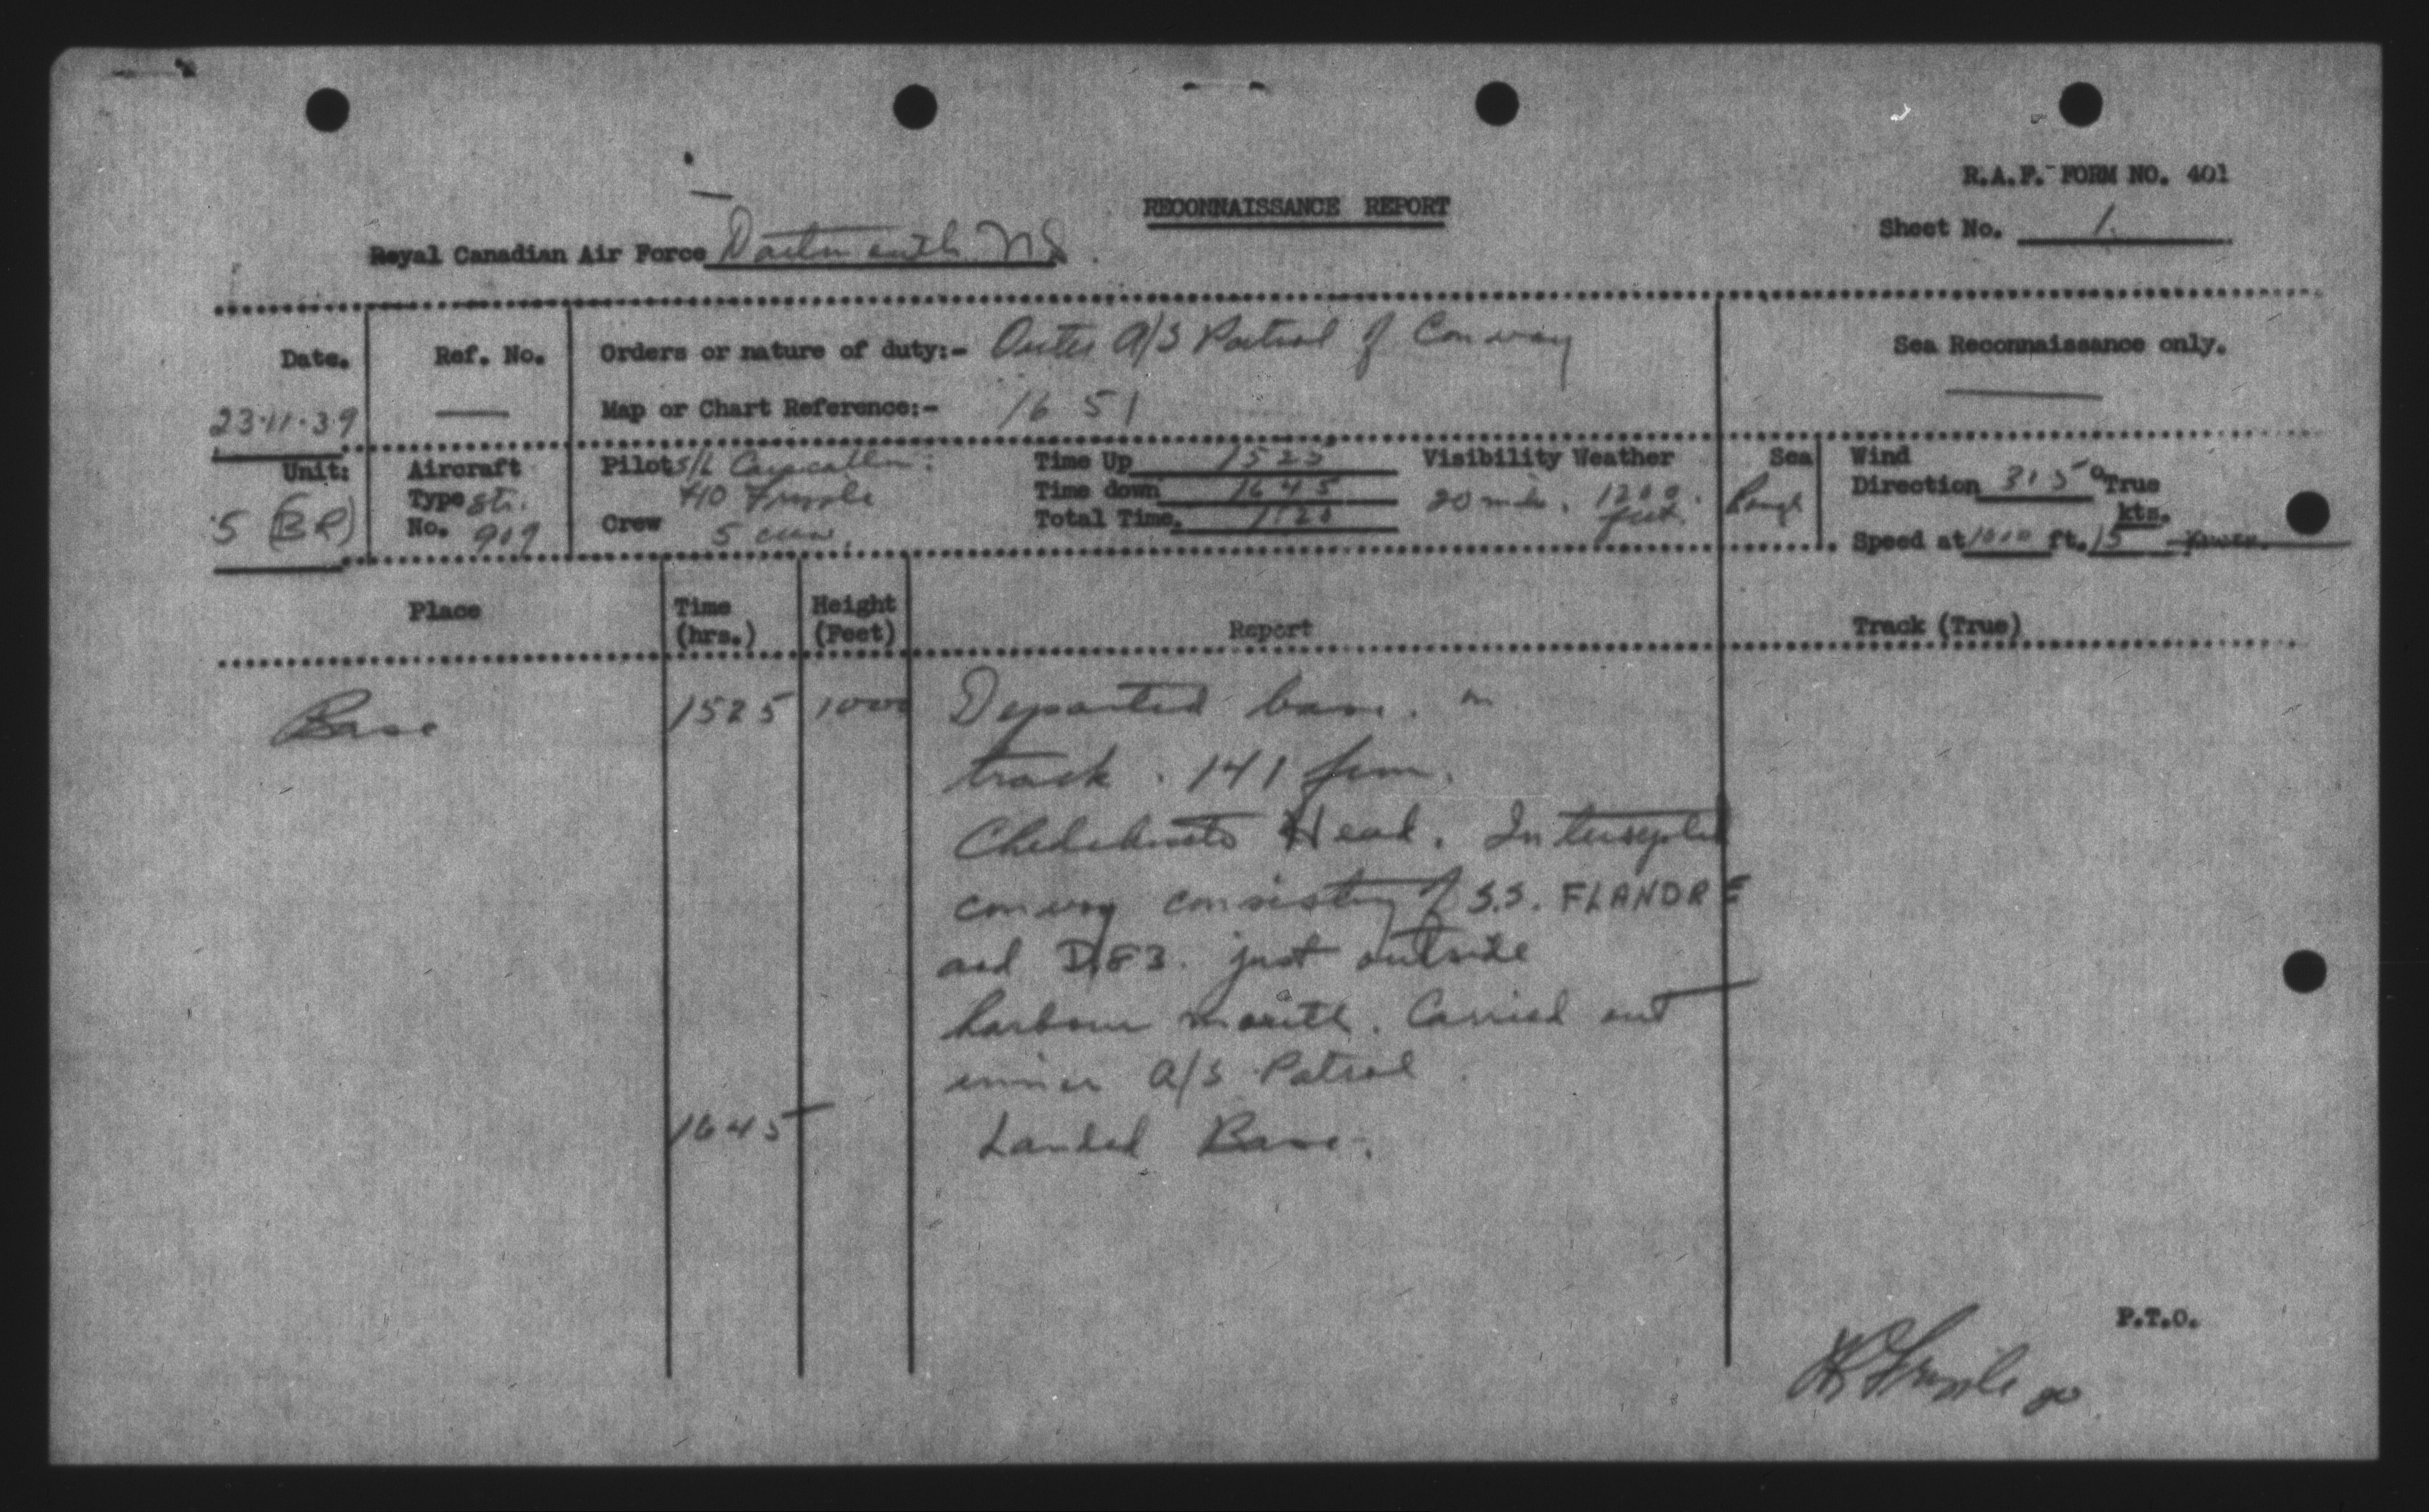 R.A.F. FORM NO. 401
RECONNAISSANCE REPORT
Sheet No. 1.
Royal Canadian Air Force Dartmouth NS.
Date. Ref. No. Orders or nature of duty:- Outer A/S Patrol of Convoy Sea Reconnaissance only.
23.11.39 — Map or Chart Reference:- 1651
Unit: Aircraft Pilot S/L Time Up 1525 Visibility Weather Sea Wind
Type Str. F/O Time down 1645 20 mile. 1200 Rough Direction 315 °True
5 (BR) No. 909 Crew 5 crew. Total Time. 1:20 feet. kts.
Speed at 1000 ft. 15
Place Time Height Report Track (True)
(hrs.) (Feet)
Base 1525 1000 Departed base. on
track. 141 from
Chedabucto Head. Intercepted
convoy consisting of S.S. FLANDRE
and D83. just outside
harbour mouth. Carried out
inner A/S Patrol.
1645 Landed Base.
P.T.O.